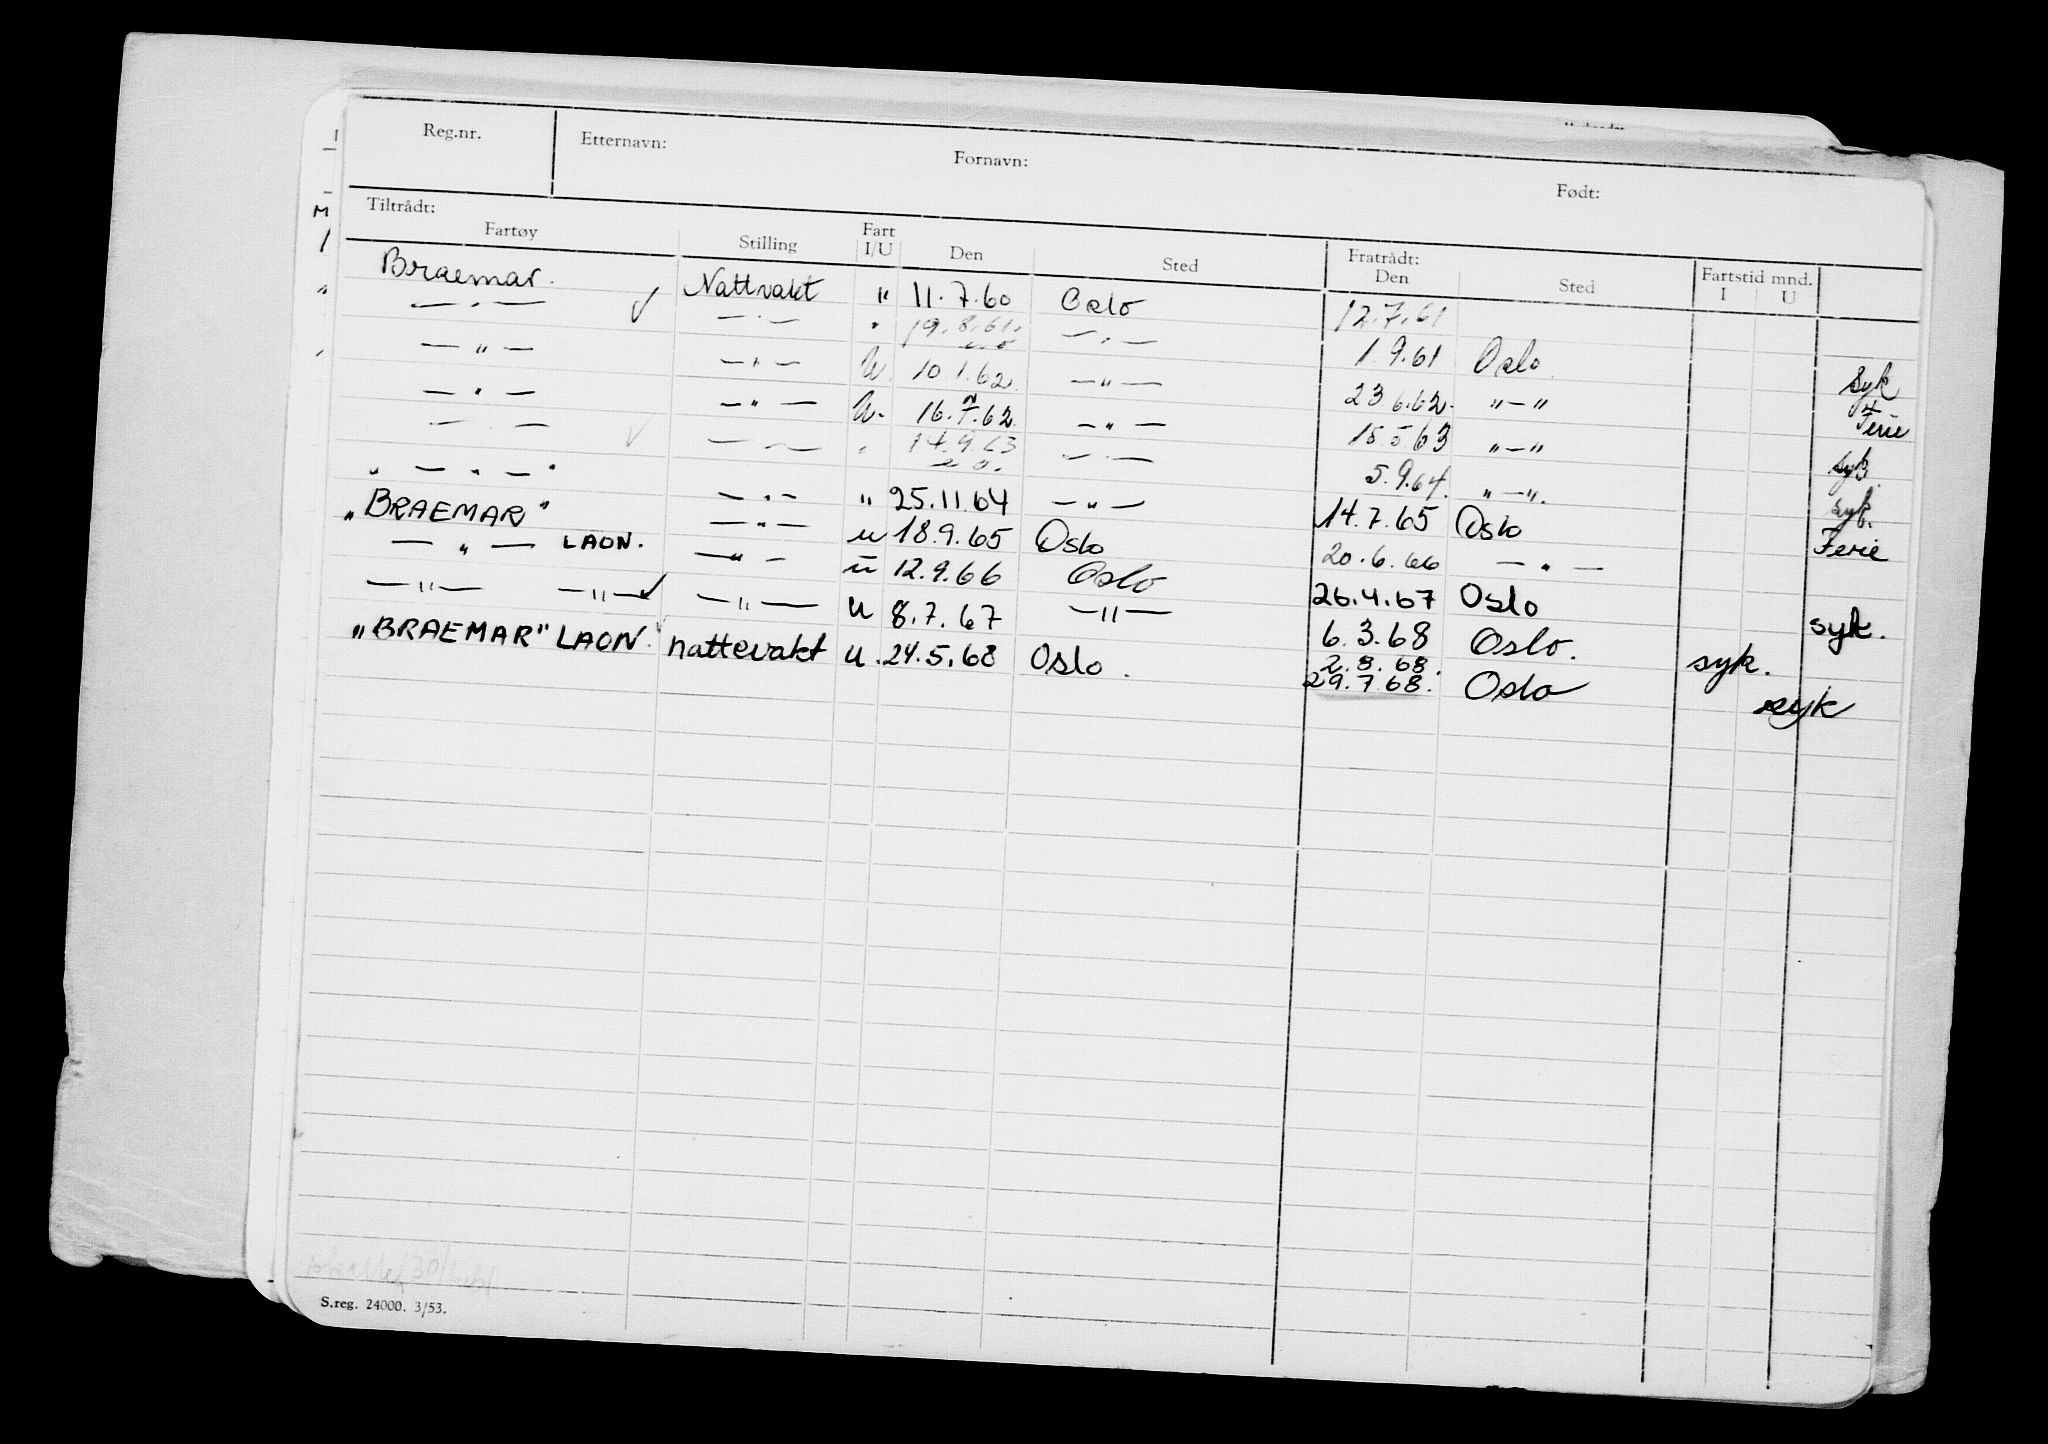 Reg.nr. Etternavn: Fornavn: Født:
Tiltrådt: Fratrådt:
Fartøy Stilling Fart I/U Den Sted Den Sted Fartstid mnd. I U
Braemar. Nattvakt " 11.7.60 Oslo 12.7.61
— " — — " — " 19.8.61. — " — 1.9.61 Oslo. syk
— " — — " — U. 10.1.62. — " — 23.6.62. " — " Ferie
— " — — " — U. 16.7.62. — " — 15.5.63 " — " syk.
— " — — " — " 14.9.63 — " — 5.9.64. " — ". syk.
" — " — " — " — " 25.11.64 — " — 14.7.65 Oslo Ferie
"BRAEMAR" — " — u 18.9.65 Oslo 20.6.66 — " —
— " — LAON. — " — u 12.9.66 Oslo 26.4.67 Oslo syk.
— " — — " — — " — u 8.7.67 — " — 6.3.68 Oslo. syk.
2.8.68.
"BRAEMAR" LAON. nattevakt u. 24.5.68 Oslo. 29.7.68. Oslo syk
S.reg. 24000. 3/53.